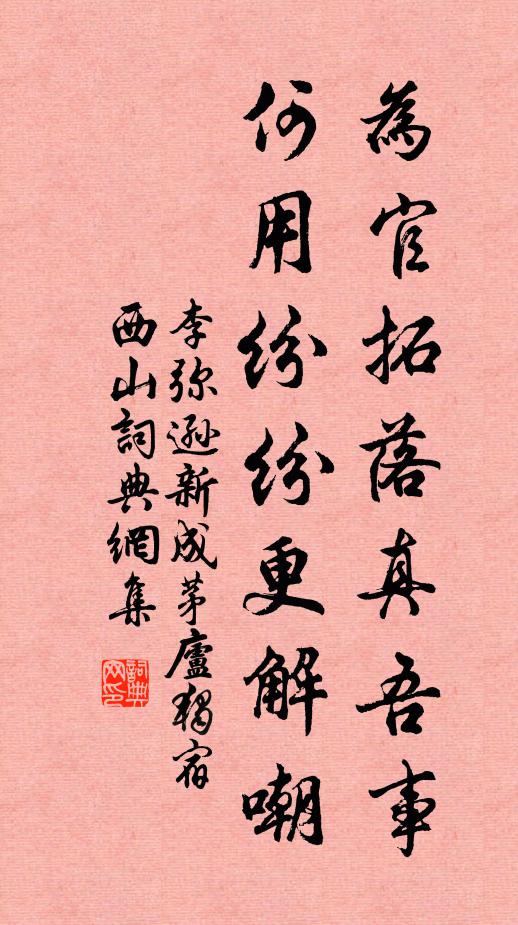 為官拓落真吾事
何用紛紛更解嘲
李弥遜新成茅廬獨宿
西山詞典網集
詞典网印